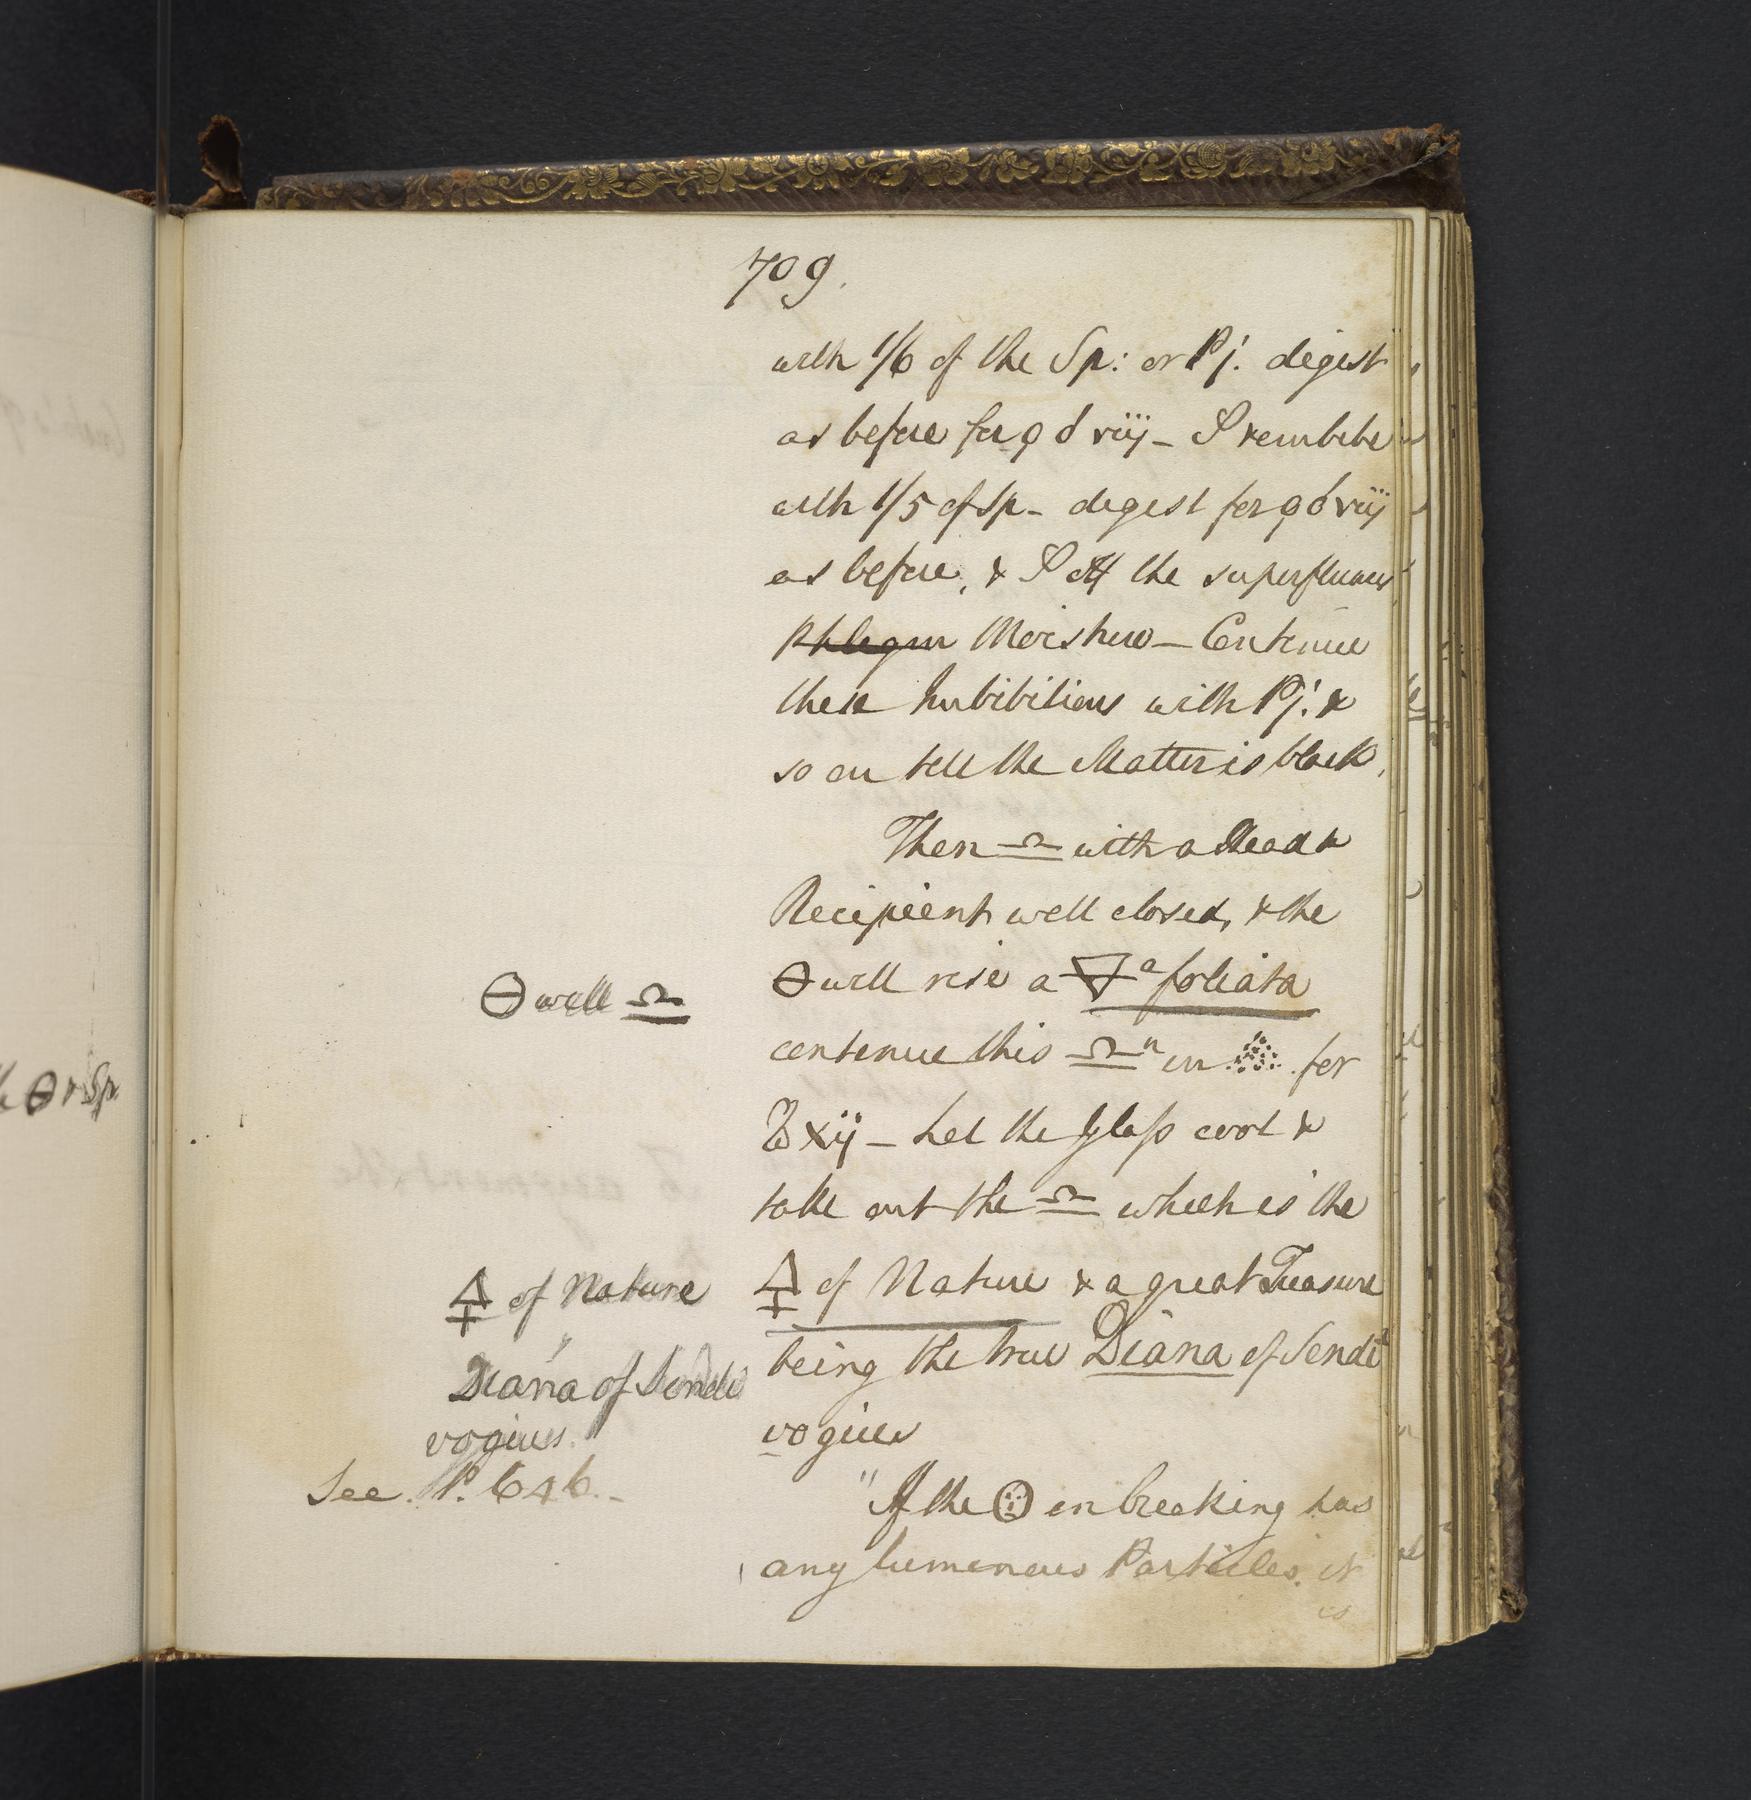 709.
with 1/6 of the Sp: or Pj. digest
as before for 9 d viij — & reimbibe
with 1/5 of Sp — digest for 9 d viij
as before, & off the superfluous
Phlegm Moisture — Continue
these Imbibitions with Pj. &
so on till the Matter is black.
Then ♎ with a Head &
Recipient well closed, & the
🜔 will rise a 🜃ᵃ foliata
🜔 will ♎
continue this ♎ⁿ in for
xij — Let the Glass cool &
take out the ♎ which is the
🜍 of Nature & a great Treasure
🜍 of Nature
being the true Diana of Sendi
vogius
Diana of Sendi
vogius
See. P. 646. —
"If the on breaking has
any luminous Particles. it
is
🜔 & Sp.